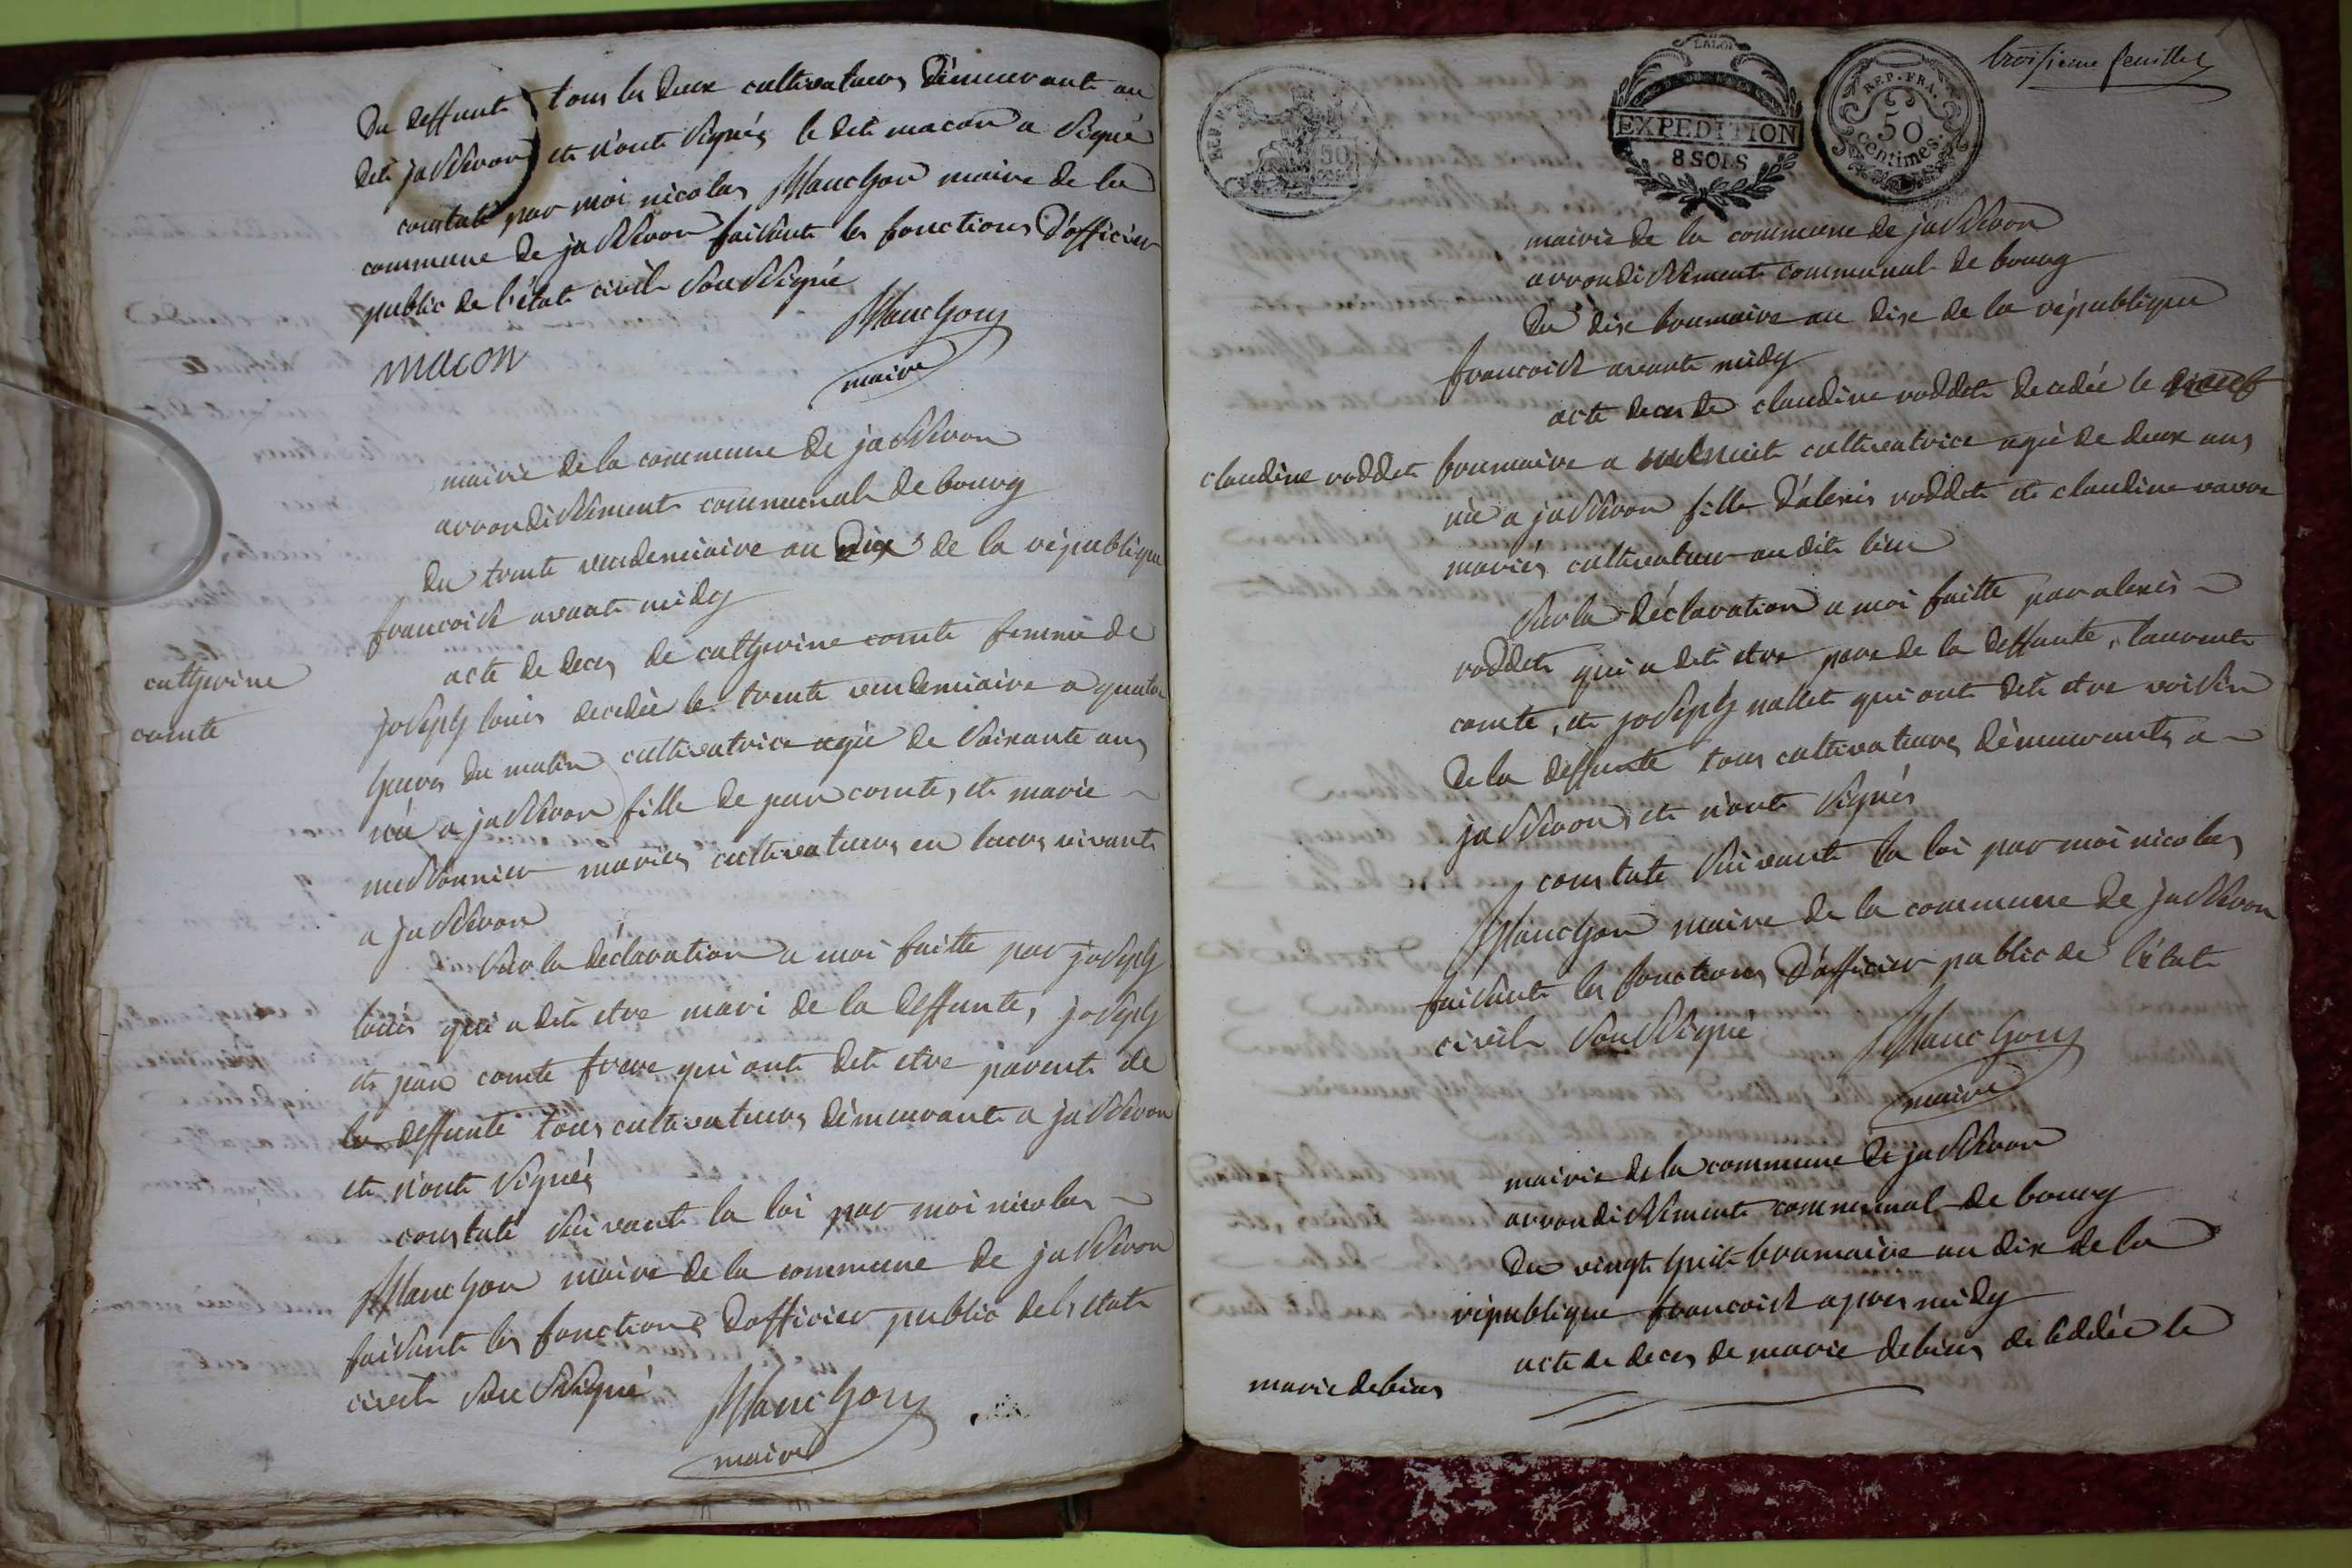 du deffunt tous les deux cultivateurs démeurant au
dit jasseron et n'ont signés le dit macon a signé
constaté par moi nicolas Manchon maire de la
commune de jasseron faisant les fonctions d'officier
public de l'état civil soussigné
Manchon
macon
maire
mairie de la commune de jasseron
arrondissement communal de bourg
du trente vendemiaire an dix de la république
francoise avant midy
catherine
comte
acte de deces de catherine comte femme de
joseph louis decedée le trente vendemiaire a quatre
heures du matin cultivatrice agée de soixante ans
née a jasseron fille de jean comte, et marie
messonnier mariés cultivateurs en leurs vivant
a jasseron
sur la déclaration a moi faitte par joseph
louis qui a dit etre mari de la deffunte, joseph
et jean comte frere qui ont dit etre parent de
la deffunte tous cultivateurs démeurant a jasseron
et n'ont signés
constaté suivant la loi par moi nicolas
Manchon maire de la commune de jasseron
faisant les fonctions d'officier public de l'etat
civil soussigné
Manchon
maire
troisieme feuillet
REP. FRA.
50
centimes.
LA LOI
EXPEDITION
8 SOLS
mairie de la commune de jasseron
arrondissement communal de bourg
du dix brumaire an dix de la république
francoise avant midy
acte deces de claudine roddet decedée le neuf
claudine roddet
brumaire a minuit cultivatrice agée de deux ans
née a jasseron fille d'alexis roddet et claudine
mariés cultivateur audit lieu
sur la déclaration a moi faitte par alexis
roddet qui a dit etre pere de la deffunte, laurent
comte, et joseph nallet qui ont dit etre voisin
de la deffunte tous cultivateurs démeurants a
jasseron, et n'ont signés
constate suivant la loi par moi nicolas
Manchon maire de la commune de jasseron
faisant les fonctions d'officier public de l'état
civil soussigné
Manchon
maire
mairie de la commune de jasseron
arrondissement communal de bourg
du vingt huit brumaire an dix de la
république francoise apres midy
acte de deces de marie debias décédée le
marie debias